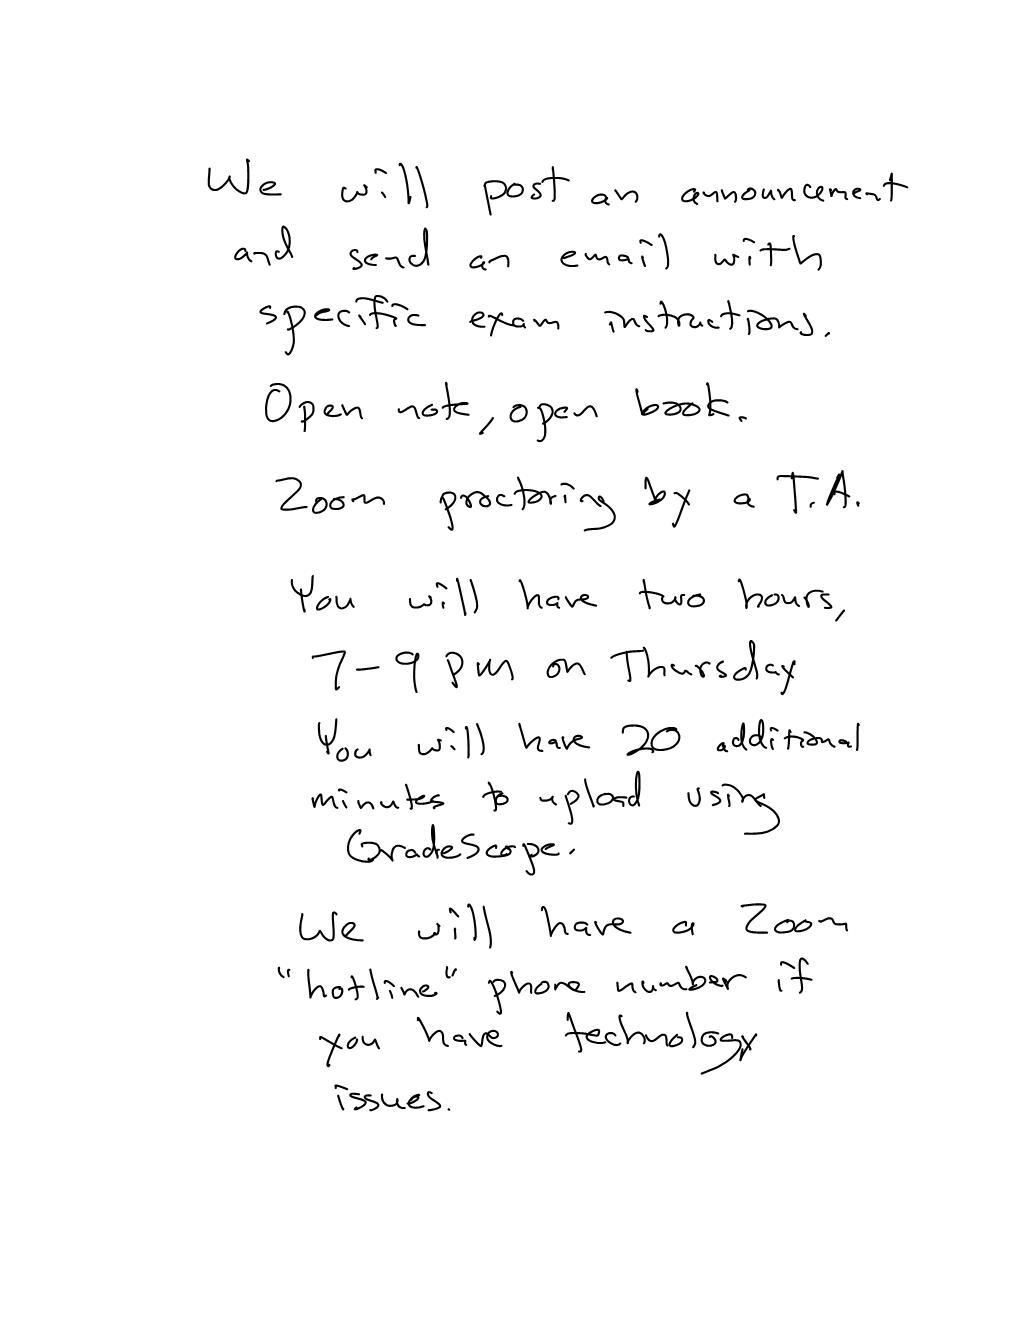 We will post an announcement
and send an email with
specific exam instructions.
Open note, open book.
Zoom proctoring by a T.A.
You will have two hours,
7-9 pm on Thursday
You will have 20 additional
minutes to upload using
GradeScope.
We will have a Zoom
"hotline" phone number if
you have technology
issues.